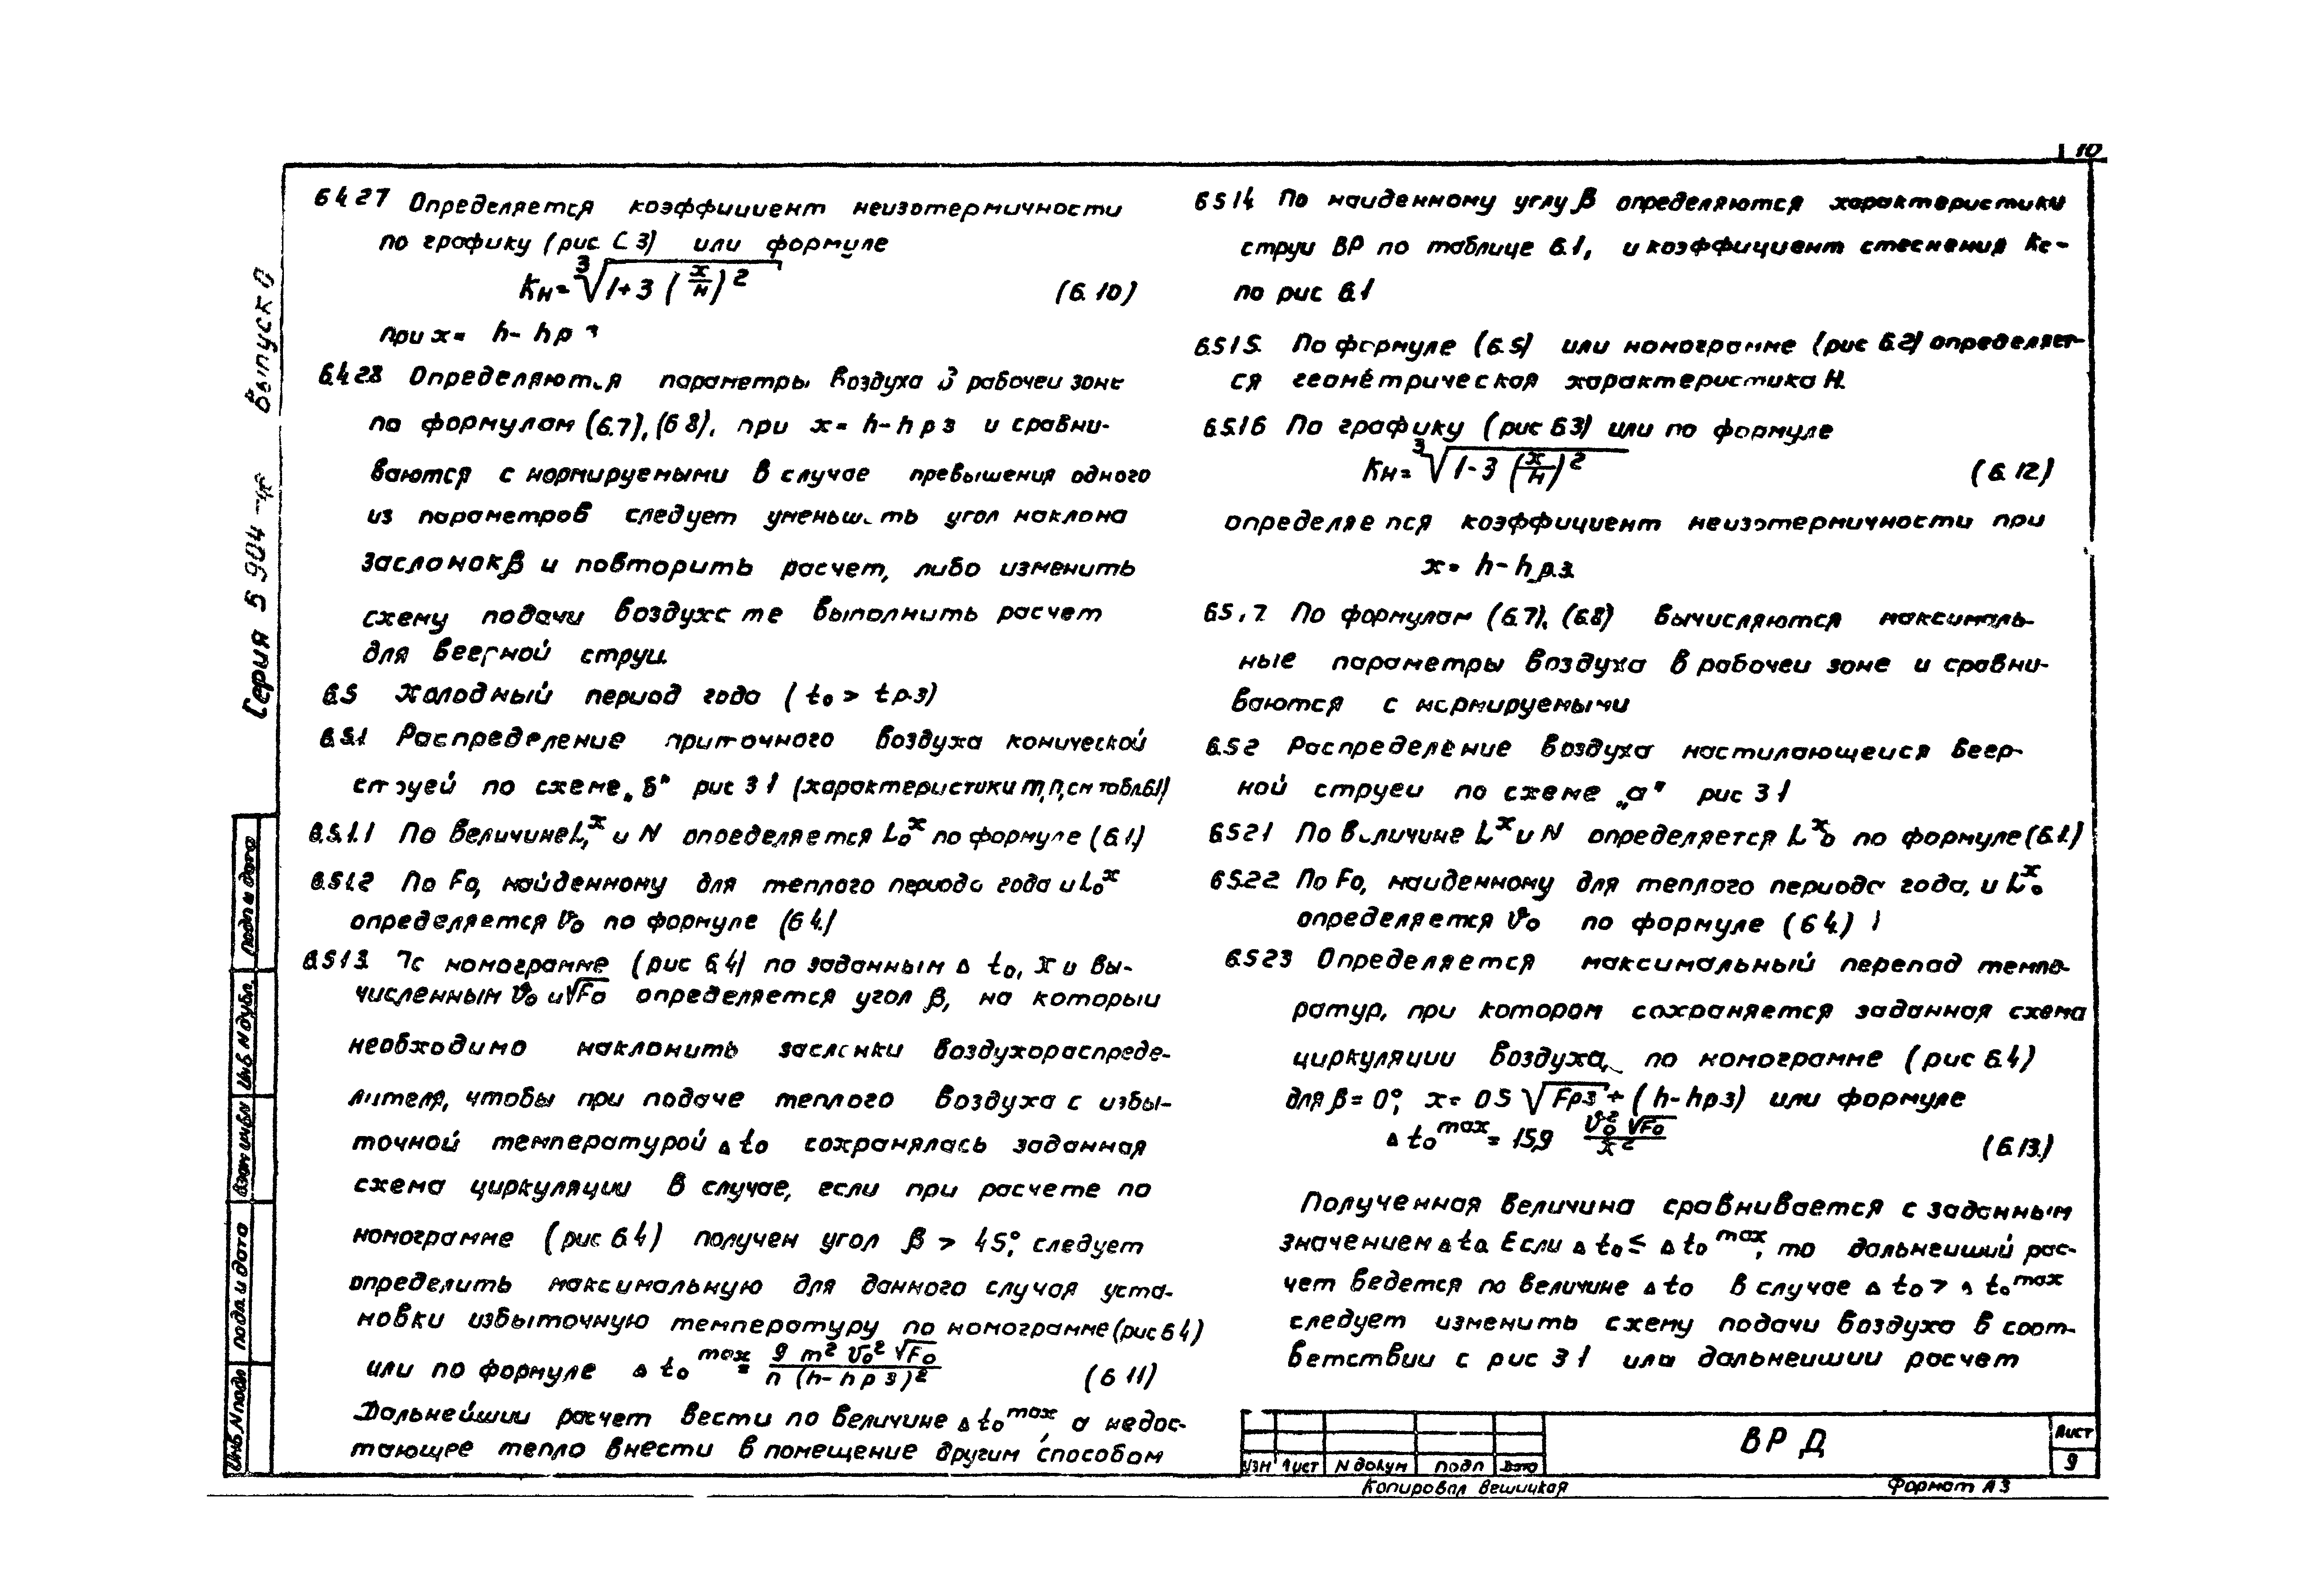 10
Серия 5 904 Выпуск 0
6.4.27 Определяется коэффициент неизотермичности
по графику (рис 6 3) или формуле
Kн = ∛1+3 (x/н)² (6.10)
при x = h - hр з
6.4.28 Определяются параметры воздуха в рабочей зоне
по формулам (6.7), (6 8), при x = h - h р з и сравни-
ваются с нормируемыми в случае превышения одного
из параметров следует уменьшить угол наклона
заслонок β и повторить расчет, либо изменить
схему подачи воздуха те выполнить расчет
для веерной струи.
6.5 Холодный период года (t₀ > tр.з)
6.5.1 Распределение приточного воздуха конической
струей по схеме „б" рис 3 1 (характеристики m, n, см табл.6.1)
6.5.1.1 По величине L,ˣ и N определяется L₀ˣ по формуле (6.1.)
6.5.1.2 По F₀, найденному для теплого периода года и L₀ˣ
определяется v₀ по формуле (6 4.)
6.5.1.3. По номограмме (рис 6.4) по заданным Δ t₀, x и вы-
численным v₀ и √F₀ определяется угол β, на который
необходимо наклонить заслонки воздухораспреде-
лителя, чтобы при подаче теплого воздуха с избы-
точной температурой Δ t₀ сохранялась заданная
схема циркуляции в случае, если при расчете по
номограмме (рис 6.4) получен угол β > 45°, следует
определить максимальную для данного случая уста-
новки избыточную температуру по номограмме (рис 6 4)
или по формуле Δ t₀ᵐᵃˣ = 9 m² v₀² √F₀ / n (h - h р з)² (6 11)
Дальнейший расчет вести по величине Δ t₀ᵐᵃˣ, а недос-
тающее тепло внести в помещение другим способом
6 5 1.4 По найденному углу β определяются характеристики
струи ВР по таблице 6.1, и коэффициент стеснения Kс -
по рис 6.1
6.5.1.5. По формуле (6.5) или номограмме (рис 6.2) определяет-
ся геометрическая характеристика Н.
6.5.1.6 По графику (рис 6 3) или по формуле
Kн = ∛1-3 (x/н)² (6.12)
определяется коэффициент неизотермичности при
x = h - h р.з.
6.5.1.7 По формулам (6.7), (6.8) вычисляются максималь-
ные параметры воздуха в рабочей зоне и сравни-
ваются с нормируемыми
6.5.2 Распределение воздуха настилающейся веер-
ной струей по схеме „а" рис 3 1
6.5.2.1 По величине Lˣ и N определяется Lˣ₀ по формуле (6.1.)
6 5.2.2 По F₀, найденному для теплого периода года, и Lˣ₀
определяется v₀ по формуле (6 4.)
6.5.2.3 Определяется максимальный перепад темпе-
ратур, при котором сохраняется заданная схема
циркуляции воздуха, по номограмме (рис 6.4)
для β = 0°, x = 0 5 √Fр з + (h - hр з) или формуле
Δ t₀ᵐᵃˣ = 15,9 v₀² √F₀ / x² (6.13.)
Полученная величина сравнивается с заданным
значением Δ t₀. Если Δ t₀ ≤ Δ t₀ᵐᵃˣ, то дальнейший рас-
чет ведется по величине Δ t₀ в случае Δ t₀ > Δ t₀ᵐᵃˣ
следует изменить схему подачи воздуха в соот-
ветствии с рис 3 1 или дальнейший расчет
Подп и дата
Инв N дубл.
Взам инв N
подп и дата
Инв N подл
Изм Лист N докум подп Дата
ВР Д
Лист
9
Копировал Вешицкая
Формат А3